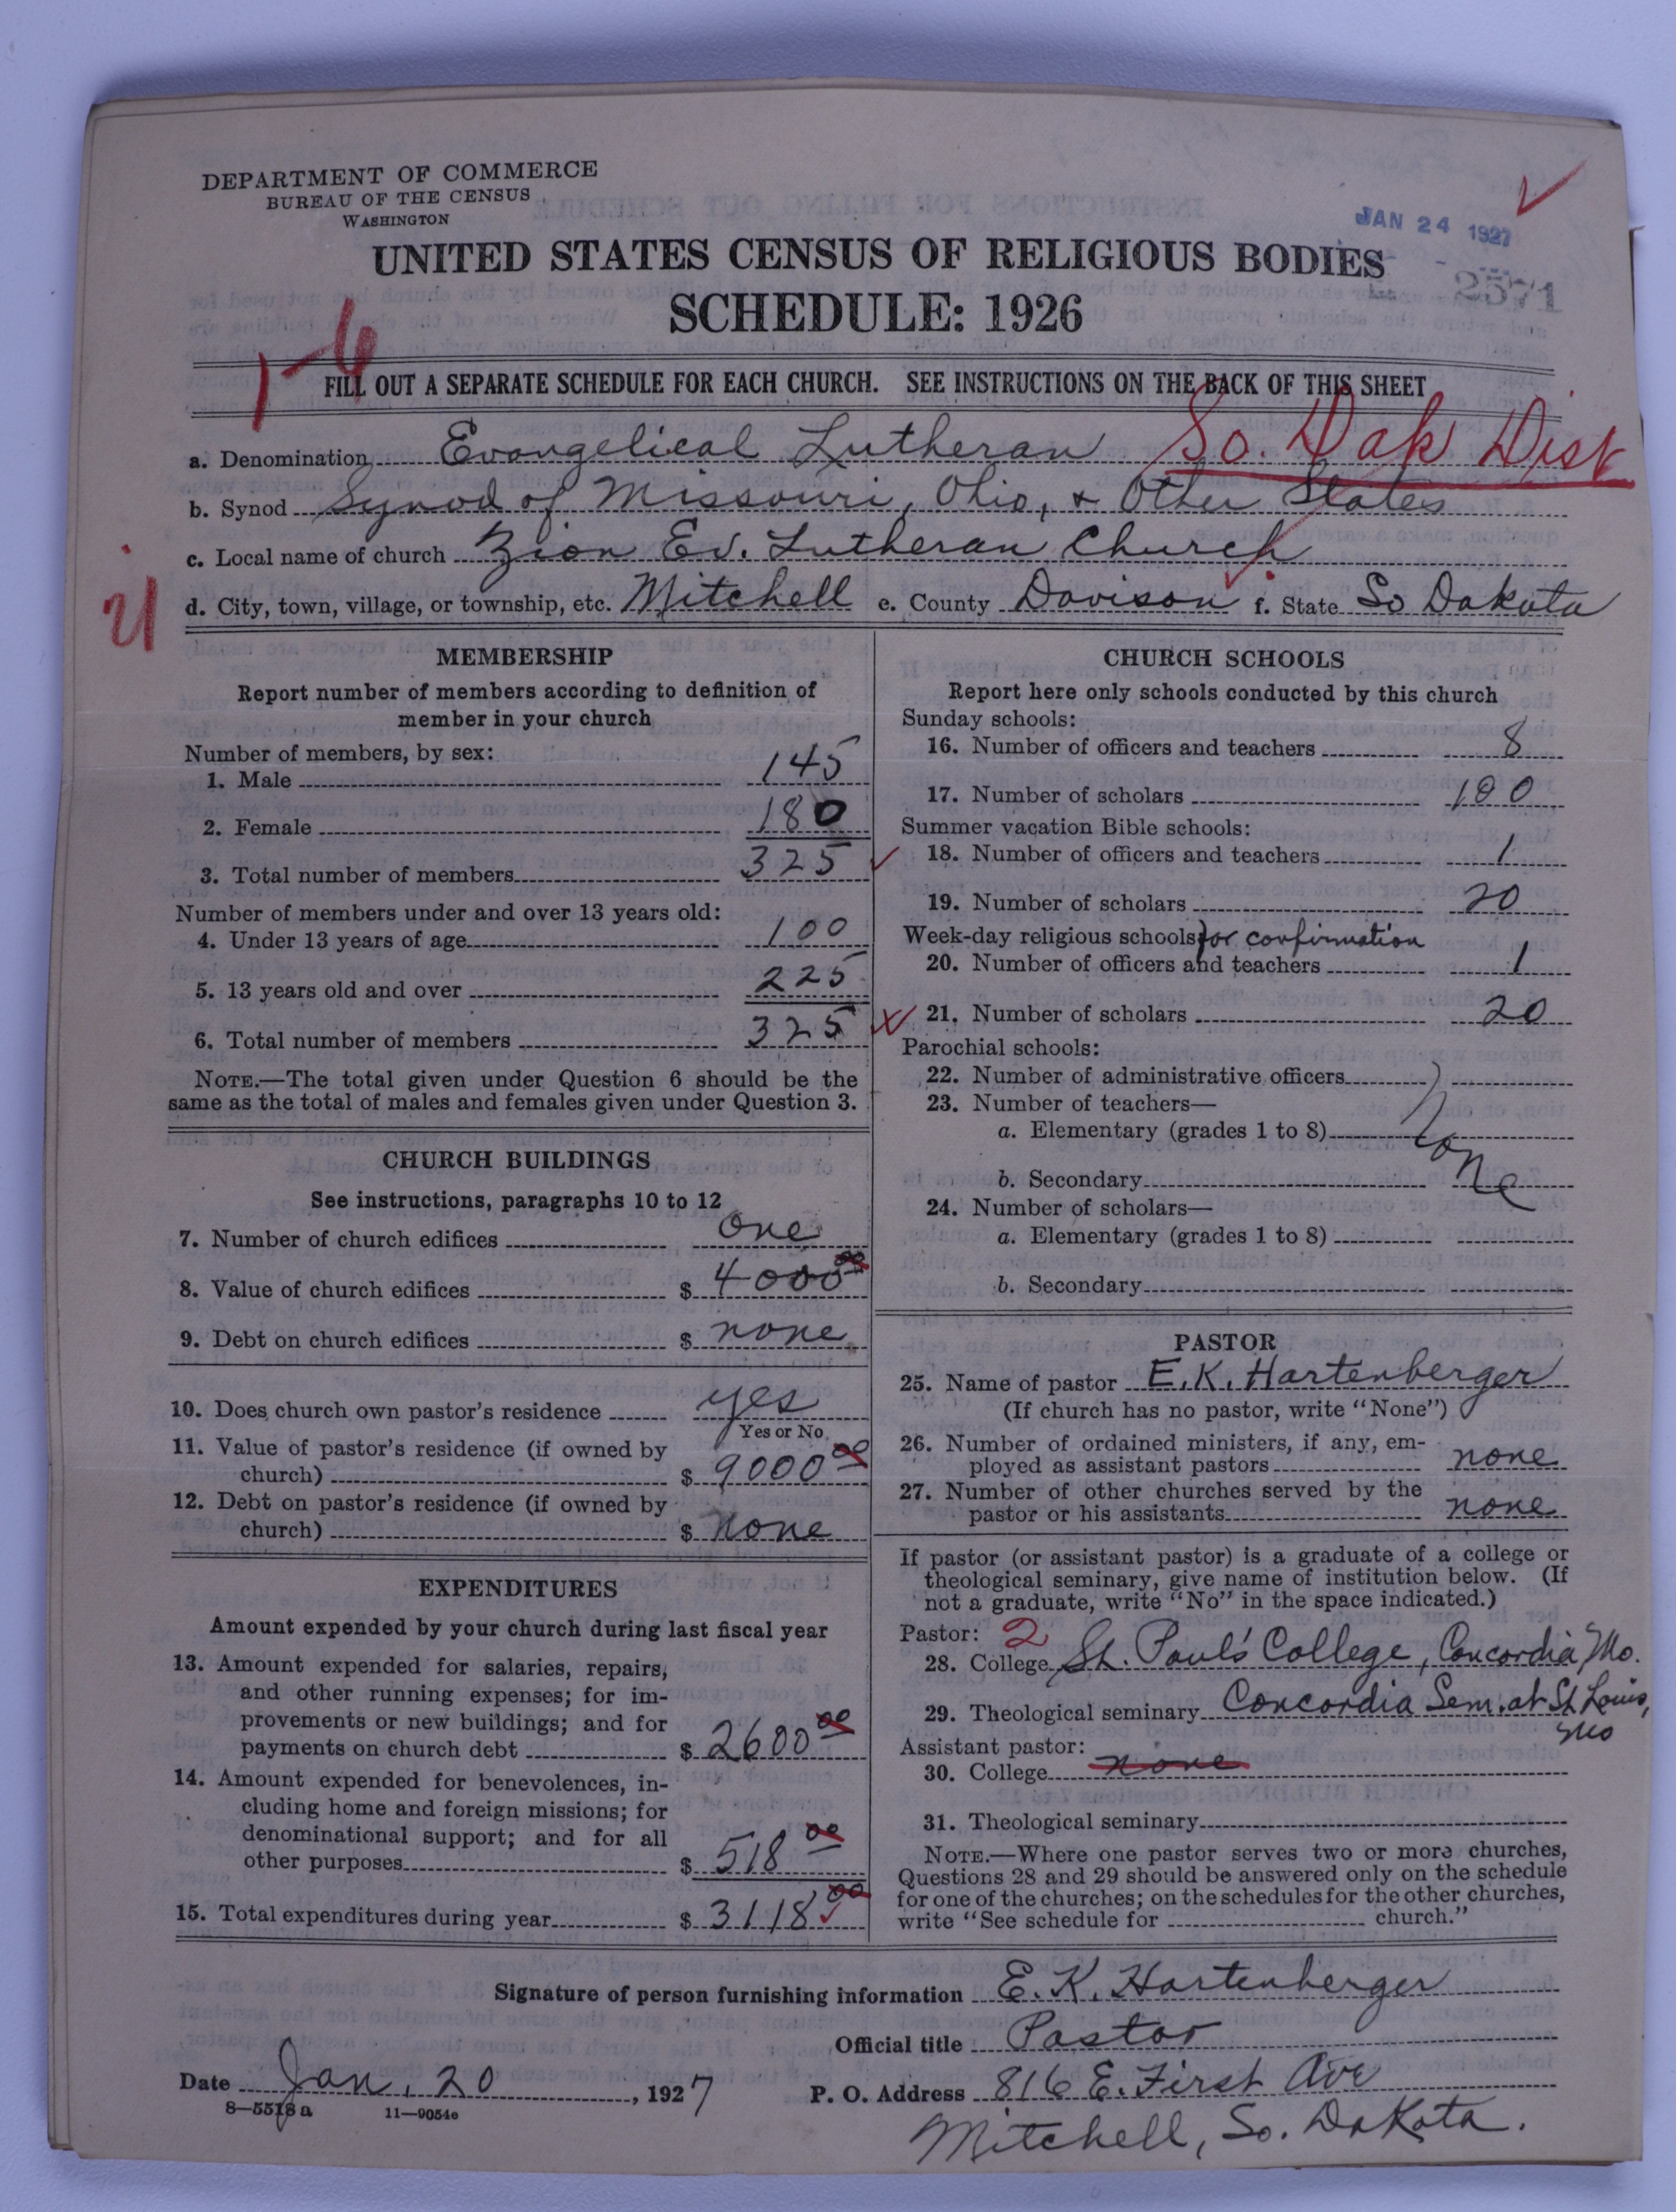 DEPARTMENT OF COMMERCE
BUREAU OF THE CENSUS
WASHINGTON
JAN 24 1927
2571
UNITED STATES CENSUS OF RELIGIOUS BODIES
SCHEDULE: 1926
1-6
FILL OUT A SEPARATE SCHEDULE FOR EACH CHURCH. SEE INSTRUCTIONS ON THE BACK OF THIS SHEET
a. Denomination Evangelical Lutheran So. Dak Dist
b. Synod Synod of Missouri, Ohio, + Other States
c. Local name of church Zion Ev. Lutheran Church
d. City, town, village, or township, etc. Mitchell e. County Davison f. State So Dakota
MEMBERSHIP
Report number of members according to definition of
member in your church
Number of members, by sex:
1. Male 145
2. Female 180
3. Total number of members 325
Number of members under and over 13 years old:
4. Under 13 years of age 100
5. 13 years old and over 225
6. Total number of members 325
NOTE.—The total given under Question 6 should be the
same as the total of males and females given under Question 3.
CHURCH BUILDINGS
See instructions, paragraphs 10 to 12
7. Number of church edifices one
8. Value of church edifices $ 4000 00
9. Debt on church edifices $ none
10. Does church own pastor's residence yes
Yes or No
11. Value of pastor's residence (if owned by
church) $ 9000 00
12. Debt on pastor's residence (if owned by
church) $ none
EXPENDITURES
Amount expended by your church during last fiscal year
13. Amount expended for salaries, repairs,
and other running expenses; for im-
provements or new buildings; and for
payments on church debt $ 2600 00
14. Amount expended for benevolences, in-
cluding home and foreign missions; for
denominational support; and for all
other purposes $ 518 00
15. Total expenditures during year $ 3118 00
CHURCH SCHOOLS
Report here only schools conducted by this church
Sunday schools:
16. Number of officers and teachers 8
17. Number of scholars 100
Summer vacation Bible schools:
18. Number of officers and teachers 1
19. Number of scholars 20
Week-day religious schools for confirmation
20. Number of officers and teachers 1
21. Number of scholars 20
Parochial schools:
22. Number of administrative officers
23. Number of teachers—
a. Elementary (grades 1 to 8) None
b. Secondary
24. Number of scholars—
a. Elementary (grades 1 to 8)
b. Secondary
PASTOR
25. Name of pastor E. K. Hartenberger
(If church has no pastor, write "None")
26. Number of ordained ministers, if any, em-
ployed as assistant pastors none
27. Number of other churches served by the
pastor or his assistants none
If pastor (or assistant pastor) is a graduate of a college or
theological seminary, give name of institution below. (If
not a graduate, write "No" in the space indicated.)
Pastor: 2
28. College St. Paul's College, Concordia, Mo.
29. Theological seminary Concordia Sem. at St Louis,
Mo
Assistant pastor:
30. College none
31. Theological seminary
NOTE.—Where one pastor serves two or more churches,
Questions 28 and 29 should be answered only on the schedule
for one of the churches; on the schedules for the other churches,
write "See schedule for church."
Signature of person furnishing information E. K. Hartenberger
Official title Pastor
Date Jan. 20, 1927 P. O. Address 816 E. First Ave
8—5518 a 11—9054e
Mitchell, So. Dakota.